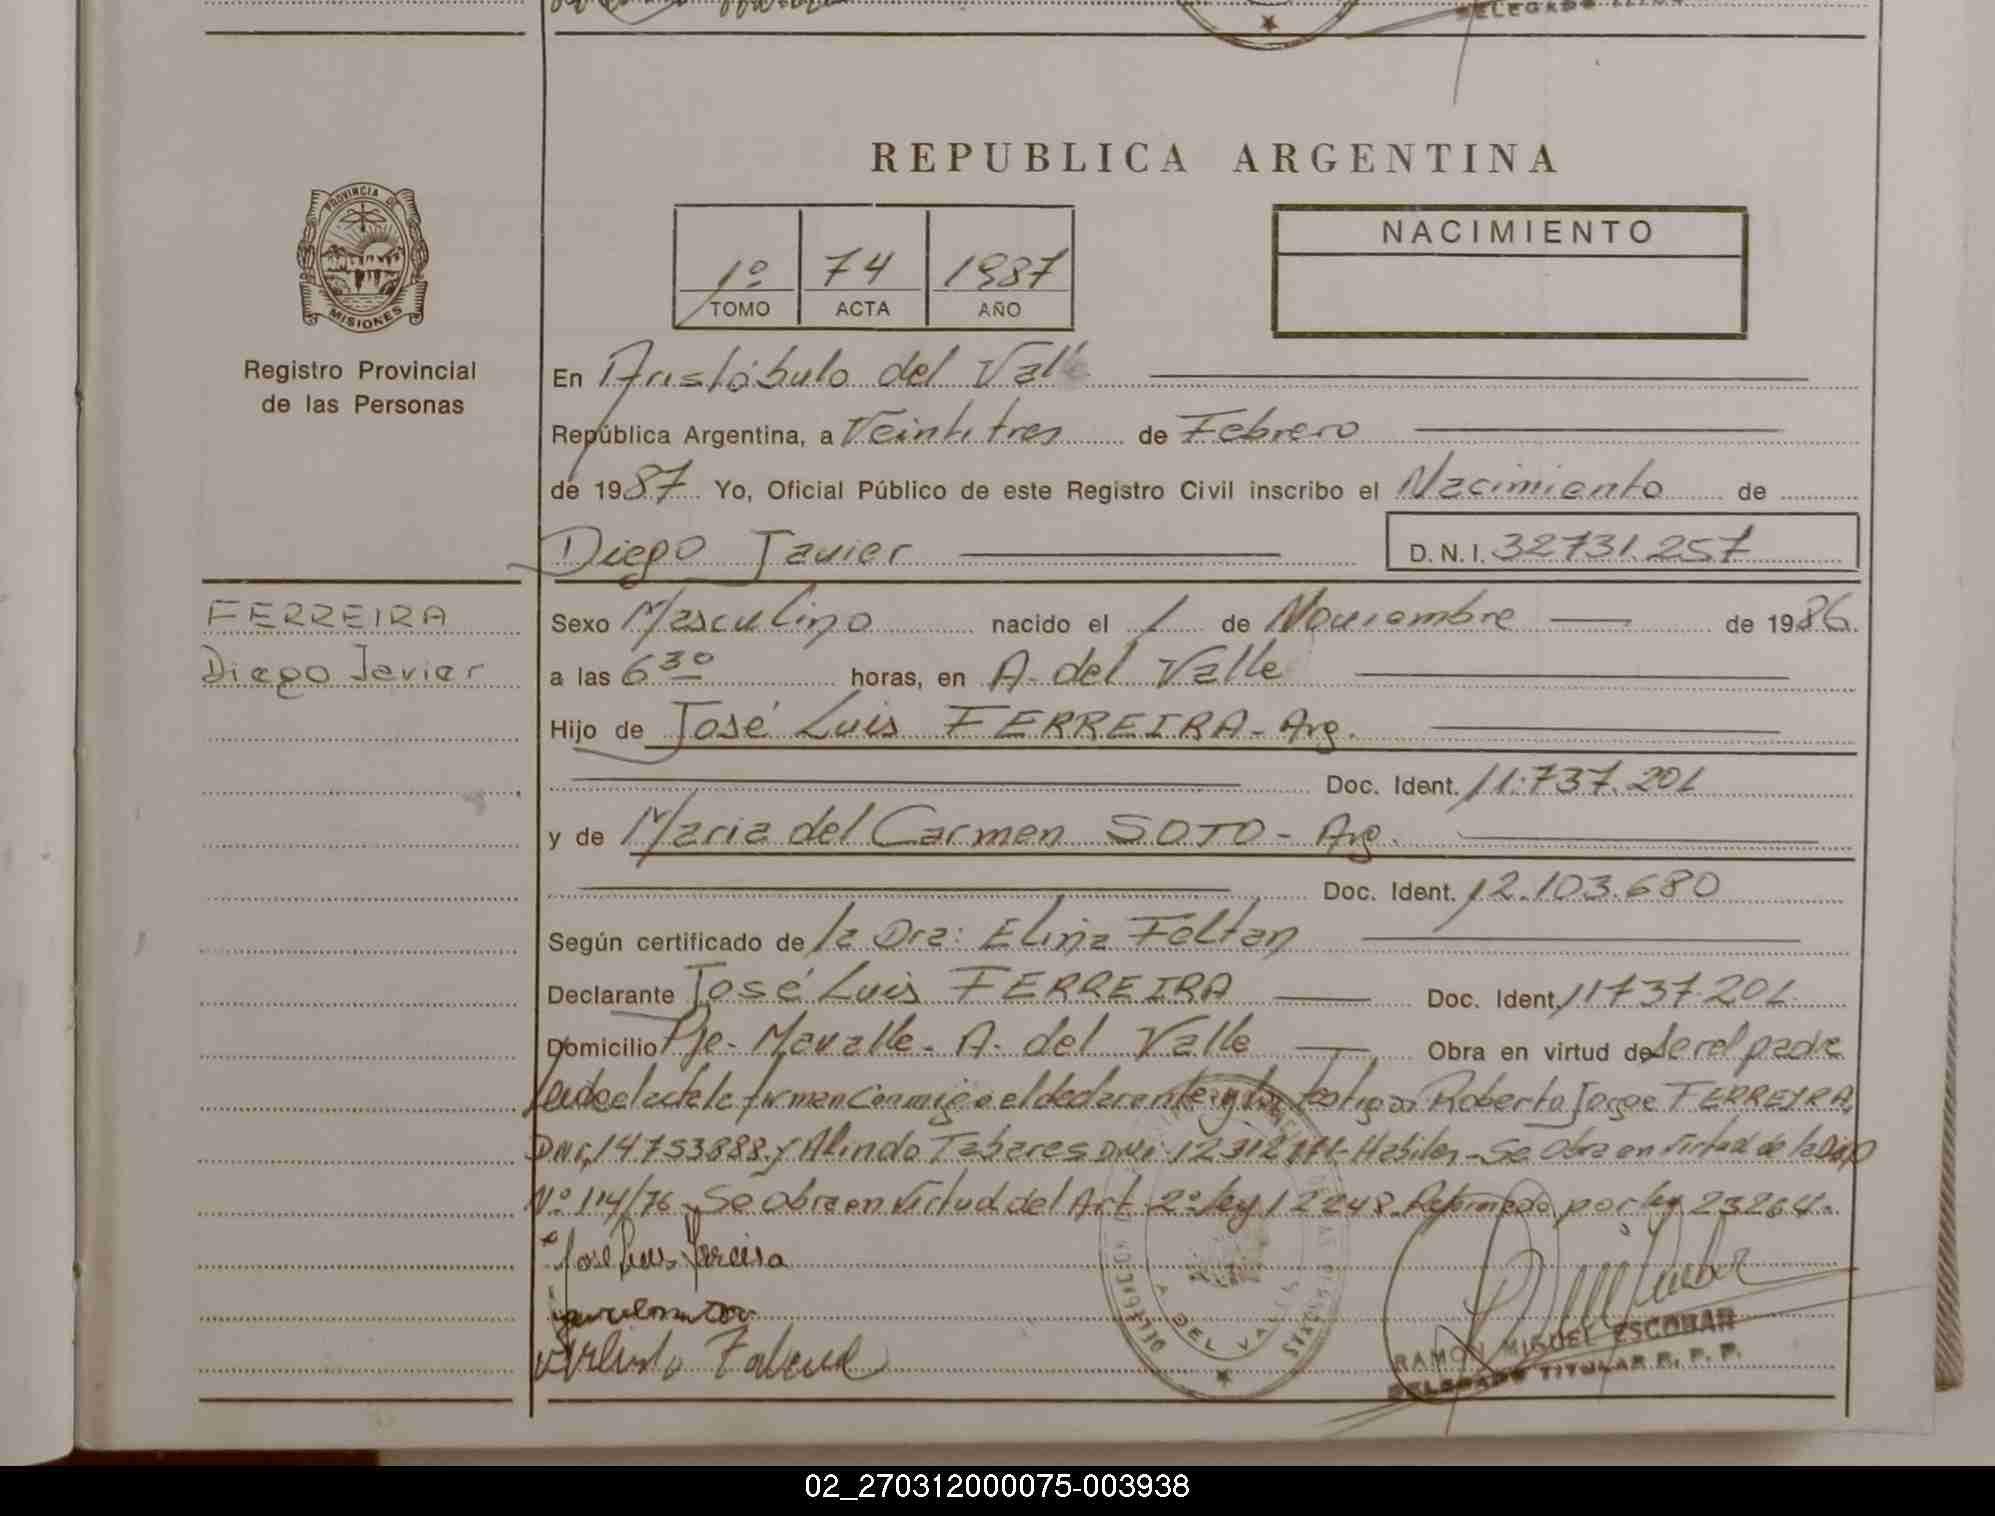 REPUBLICA ARGENTINA
PROVINCIA DE
MISIONES
Registro Provincial
de las Personas
1º 74 1987
TOMO ACTA AÑO
NACIMIENTO
En Aristóbulo del Valle
República Argentina, a Veintitres de Febrero
de 1987 Yo, Oficial Público de este Registro Civil inscribo el Nacimiento de
Diego Javier D.N.I. 32731.257
FERREIRA
Diego Javier
Sexo Masculino nacido el 1 de Noviembre de 1986.
a las 6 30 horas, en A. del Valle
Hijo de José Luis FERREIRA - Arg.
Doc. Ident. 11.737.201
y de Maria del Carmen SOTO - Arg.
Doc. Ident. 12.103.680
Según certificado de la Dra: Elina Feltan
Declarante José Luis FERREIRA Doc. Ident. 11737201
Domicilio Pje. Mavalle - A. del Valle Obra en virtud de ser el padre
Leida el acta la firman conmigo el declarante y los testigos Roberto Jorge FERREYRA,
DNI, 14753888 y Alindo Tabares DNI: Habiles - Se obra en virtud de la Disp
Nº 114/76 - Se obra en virtud del Art. 2º ley 12248. Reformado por ley 23264.
José Luis Ferreira
DEL VALLE
RAMON MIGUEL ESCOBAR
DELEGADO TITULAR R. P. P.
02_270312000075-003938